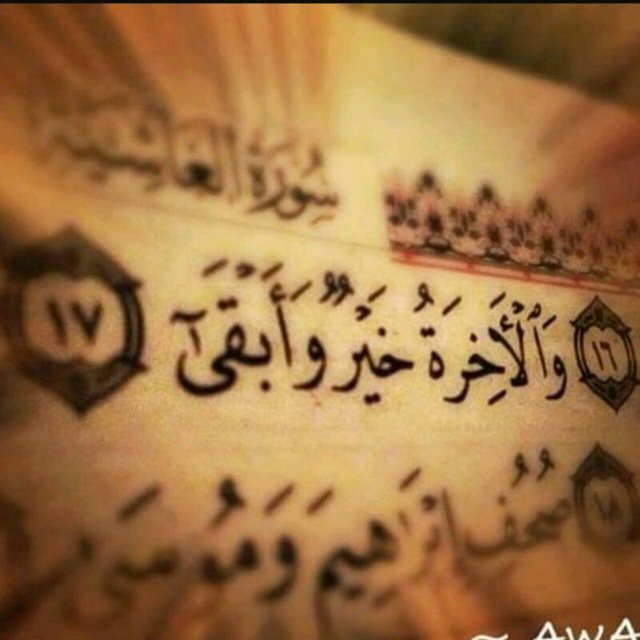 سُورَةُ الغَاشِيَةِ
١٦ وَٱلْأَخِرَةُ خَيْرٌ وَأَبْقَىٰٓ ١٧
١٨ صُحُفِ إِبْرَٰهِيمَ وَمُوسَىٰ
~ AWA